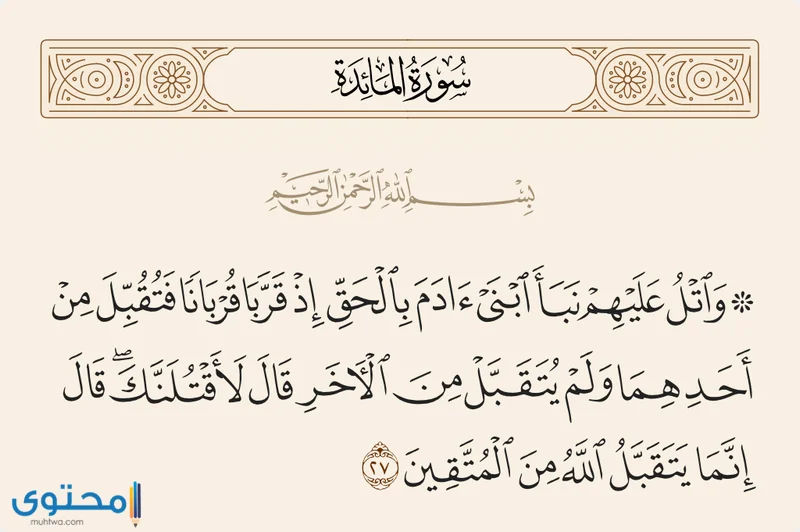 سُورَةُ المَائِدَةِ
بِسْمِ ٱللَّهِ ٱلرَّحْمَٰنِ ٱلرَّحِيمِ
۞ وَٱتْلُ عَلَيْهِمْ نَبَأَ ٱبْنَىْ ءَادَمَ بِٱلْحَقِّ إِذْ قَرَّبَا قُرْبَانًا فَتُقُبِّلَ مِنْ
أَحَدِهِمَا وَلَمْ يُتَقَبَّلْ مِنَ ٱلْأَخَرِ قَالَ لَأَقْتُلَنَّكَ ۖ قَالَ
إِنَّمَا يَتَقَبَّلُ ٱللَّهُ مِنَ ٱلْمُتَّقِينَ ٢٧
محتوى
muhtwa.com